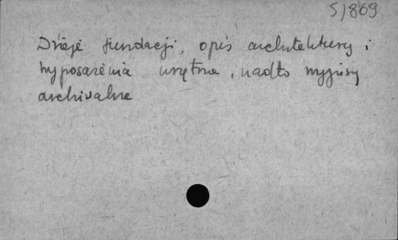 5/869
Dzieje fundacji, opis architektury i
wyposażenia wnętrza, nadto wypisy
archiwalne